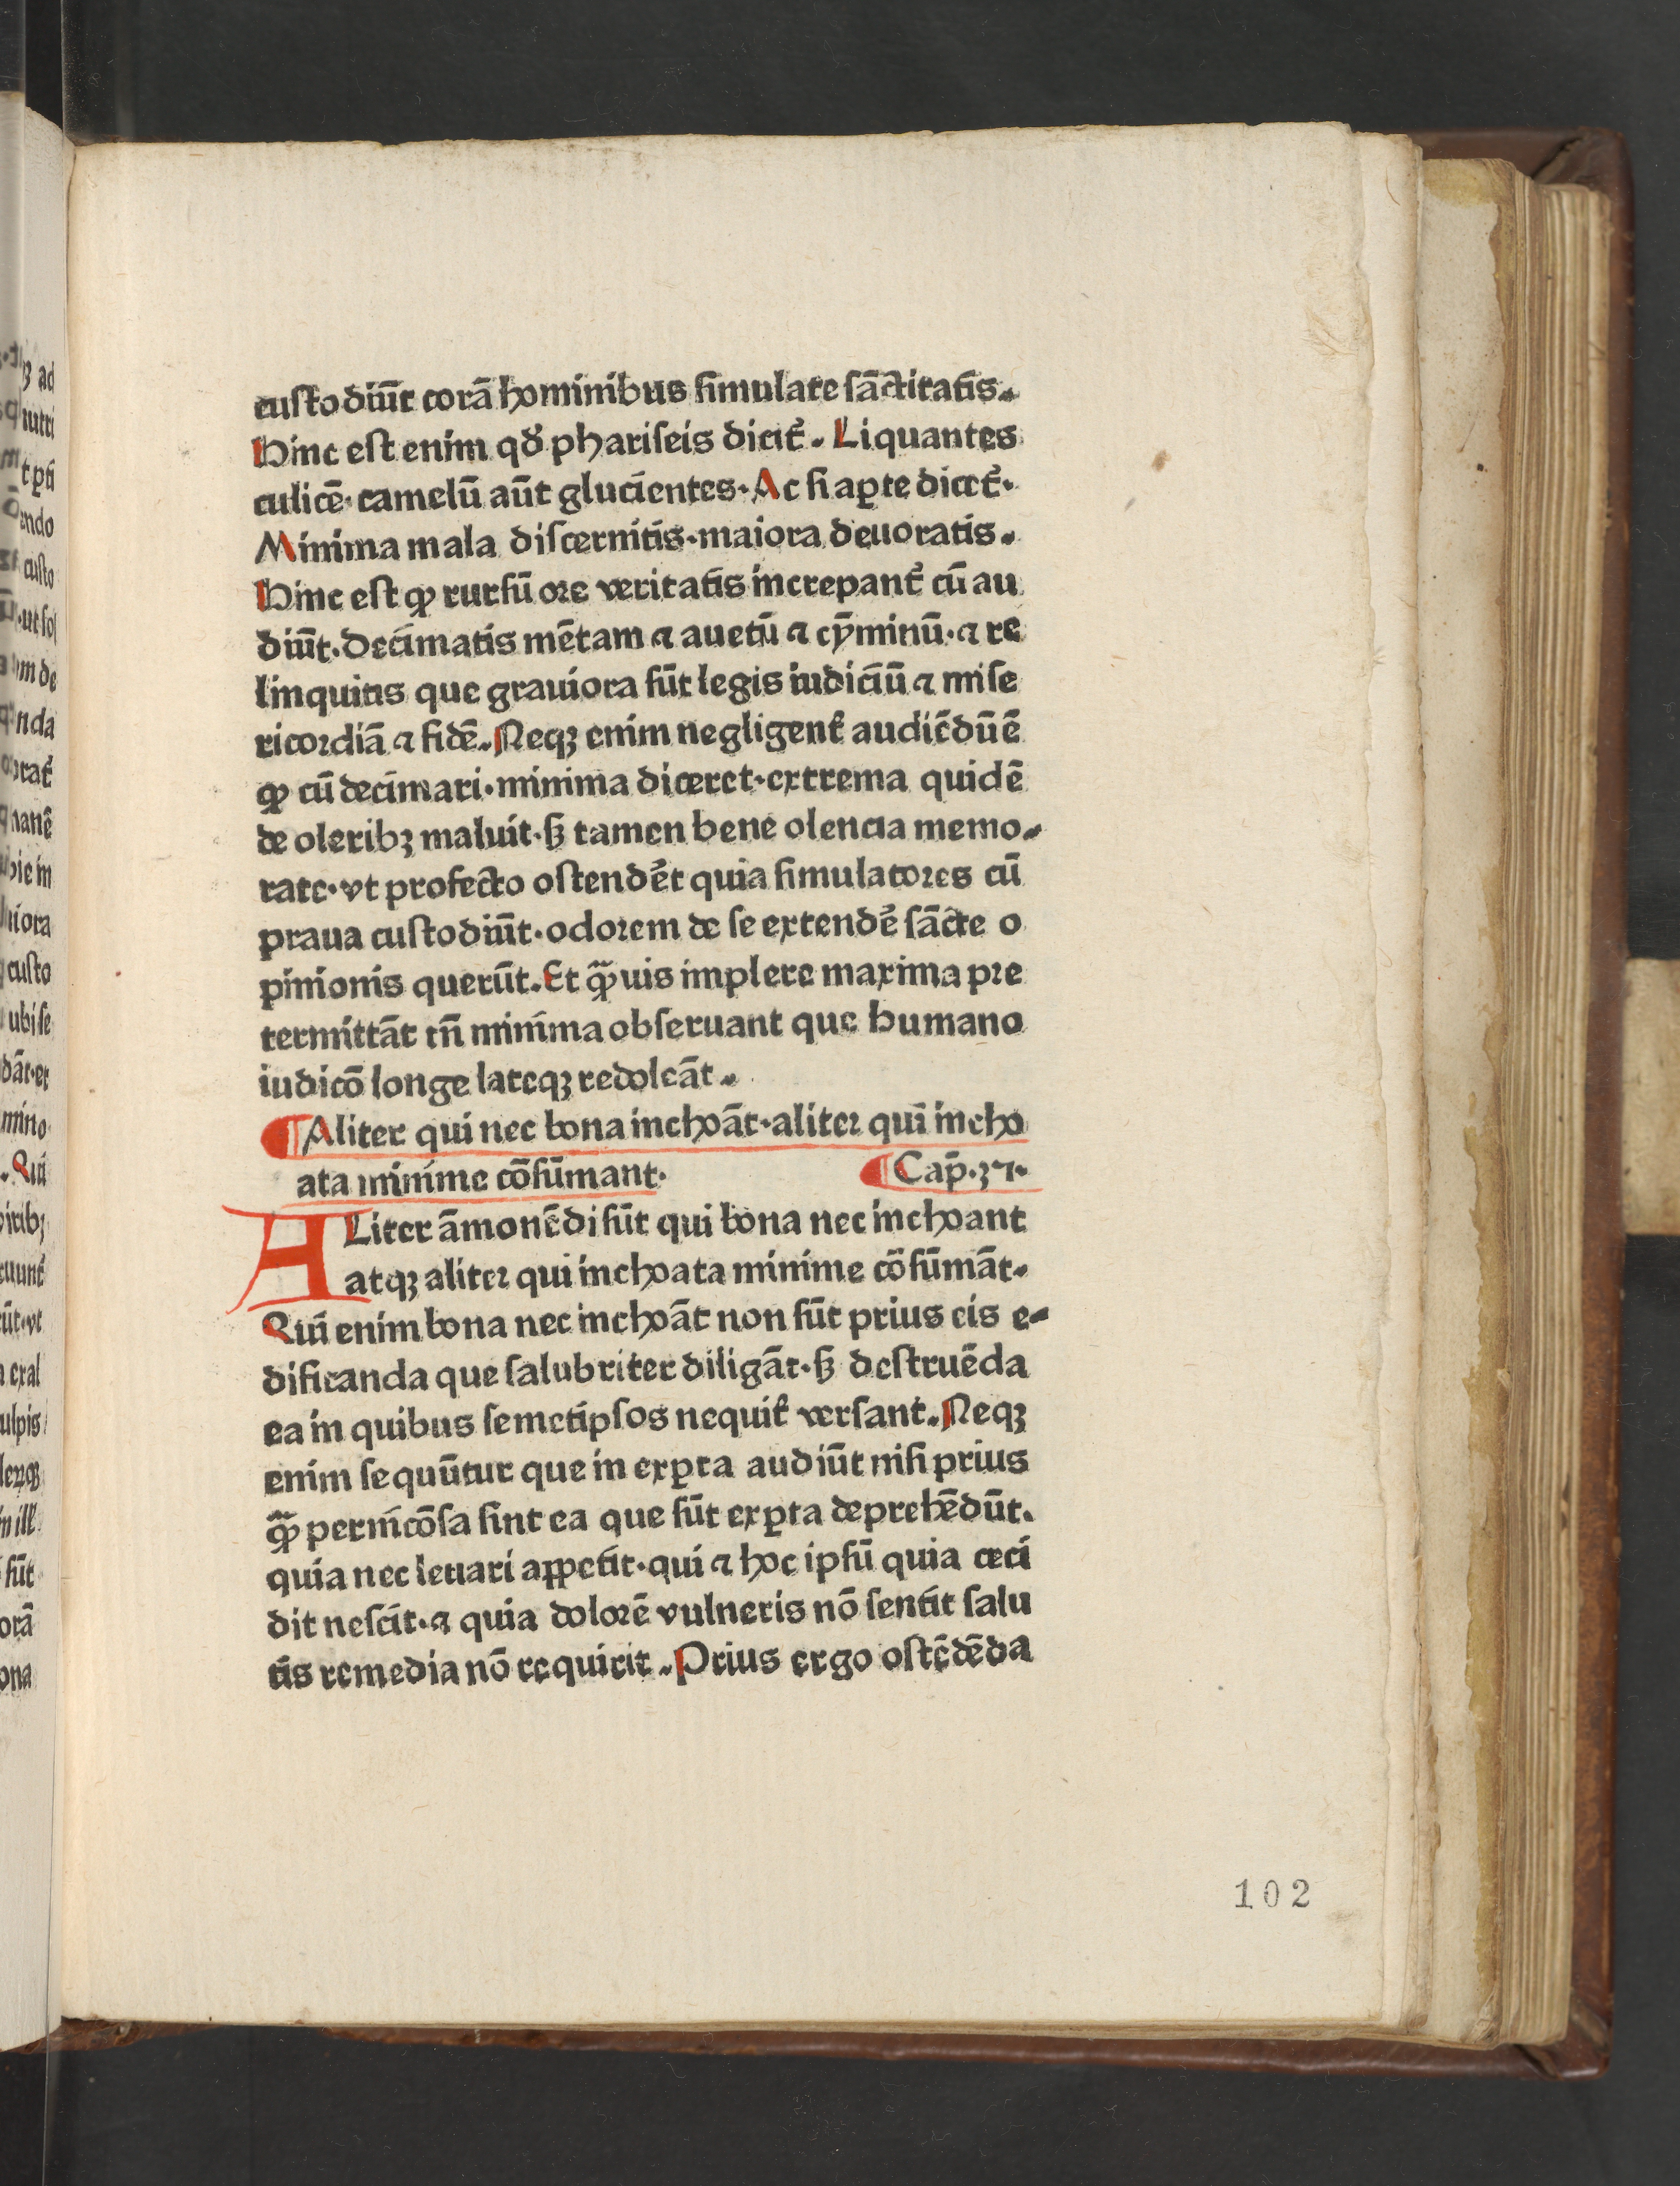 custodiūt corā hominibus simulate sāctitatis.
Hinc est enim qď phariseis dicit̄. Liquantes
culicē· camelū aūt glucientes. Ac si aꝑte dicet̄.
Minima mala discernitis·maiora deuoratis.
Hinc est ꝙ rursū ore veritatis increpant̄ cū au
diūt. Decimatis mētam ⁊ auetū ⁊ cȳminū·⁊ re
linquitis que grauiora sūt legis iudiciū ⁊ mise
ricordiā ⁊ fidē. Neqꝫ enim negligent̄ audiēdū ē
ꝙ cū decimari·minima diceret·extrema quidē
de oleribꝫ maluit·sꝫ tamen bene olencia memo-
rare·vt profecto ostendēt quia simulatores cū
praua custodiūt·odorem de se extendē sācte o
pinionis querūt. Et ꝙ̄uis implere maxima pre
termittāt tn̄ minima obseruant que humano
iudicō longe lateqꝫ redoleāt.
¶ Aliter qui nec bona inchoāt·aliter qui incho
ata minime cōsūmant.
¶ Cap̄·37·
ALiter āmonēdi sūt qui bona nec inchoant
atqꝫ aliter qui inchoata minime cōsūmāt.
Qui enim bona nec inchoāt non sūt prius eis e-
dificanda que salubriter diligāt·sꝫ destruēda
ea in quibus semetipsos nequit̄ versant. Neqꝫ
enim sequūtur que in exꝑta audiūt nisi prius
ꝙ̄ pernicōsa sint ea que sūt exꝑta deprehēdūt.
quia nec leuari appetit·qui ⁊ hoc ipsū quia ceci
dit nescit·⁊ quia dolorē vulneris nō sentit salu
tis remedia nō requirit. Prius ergo ostēdēda
102